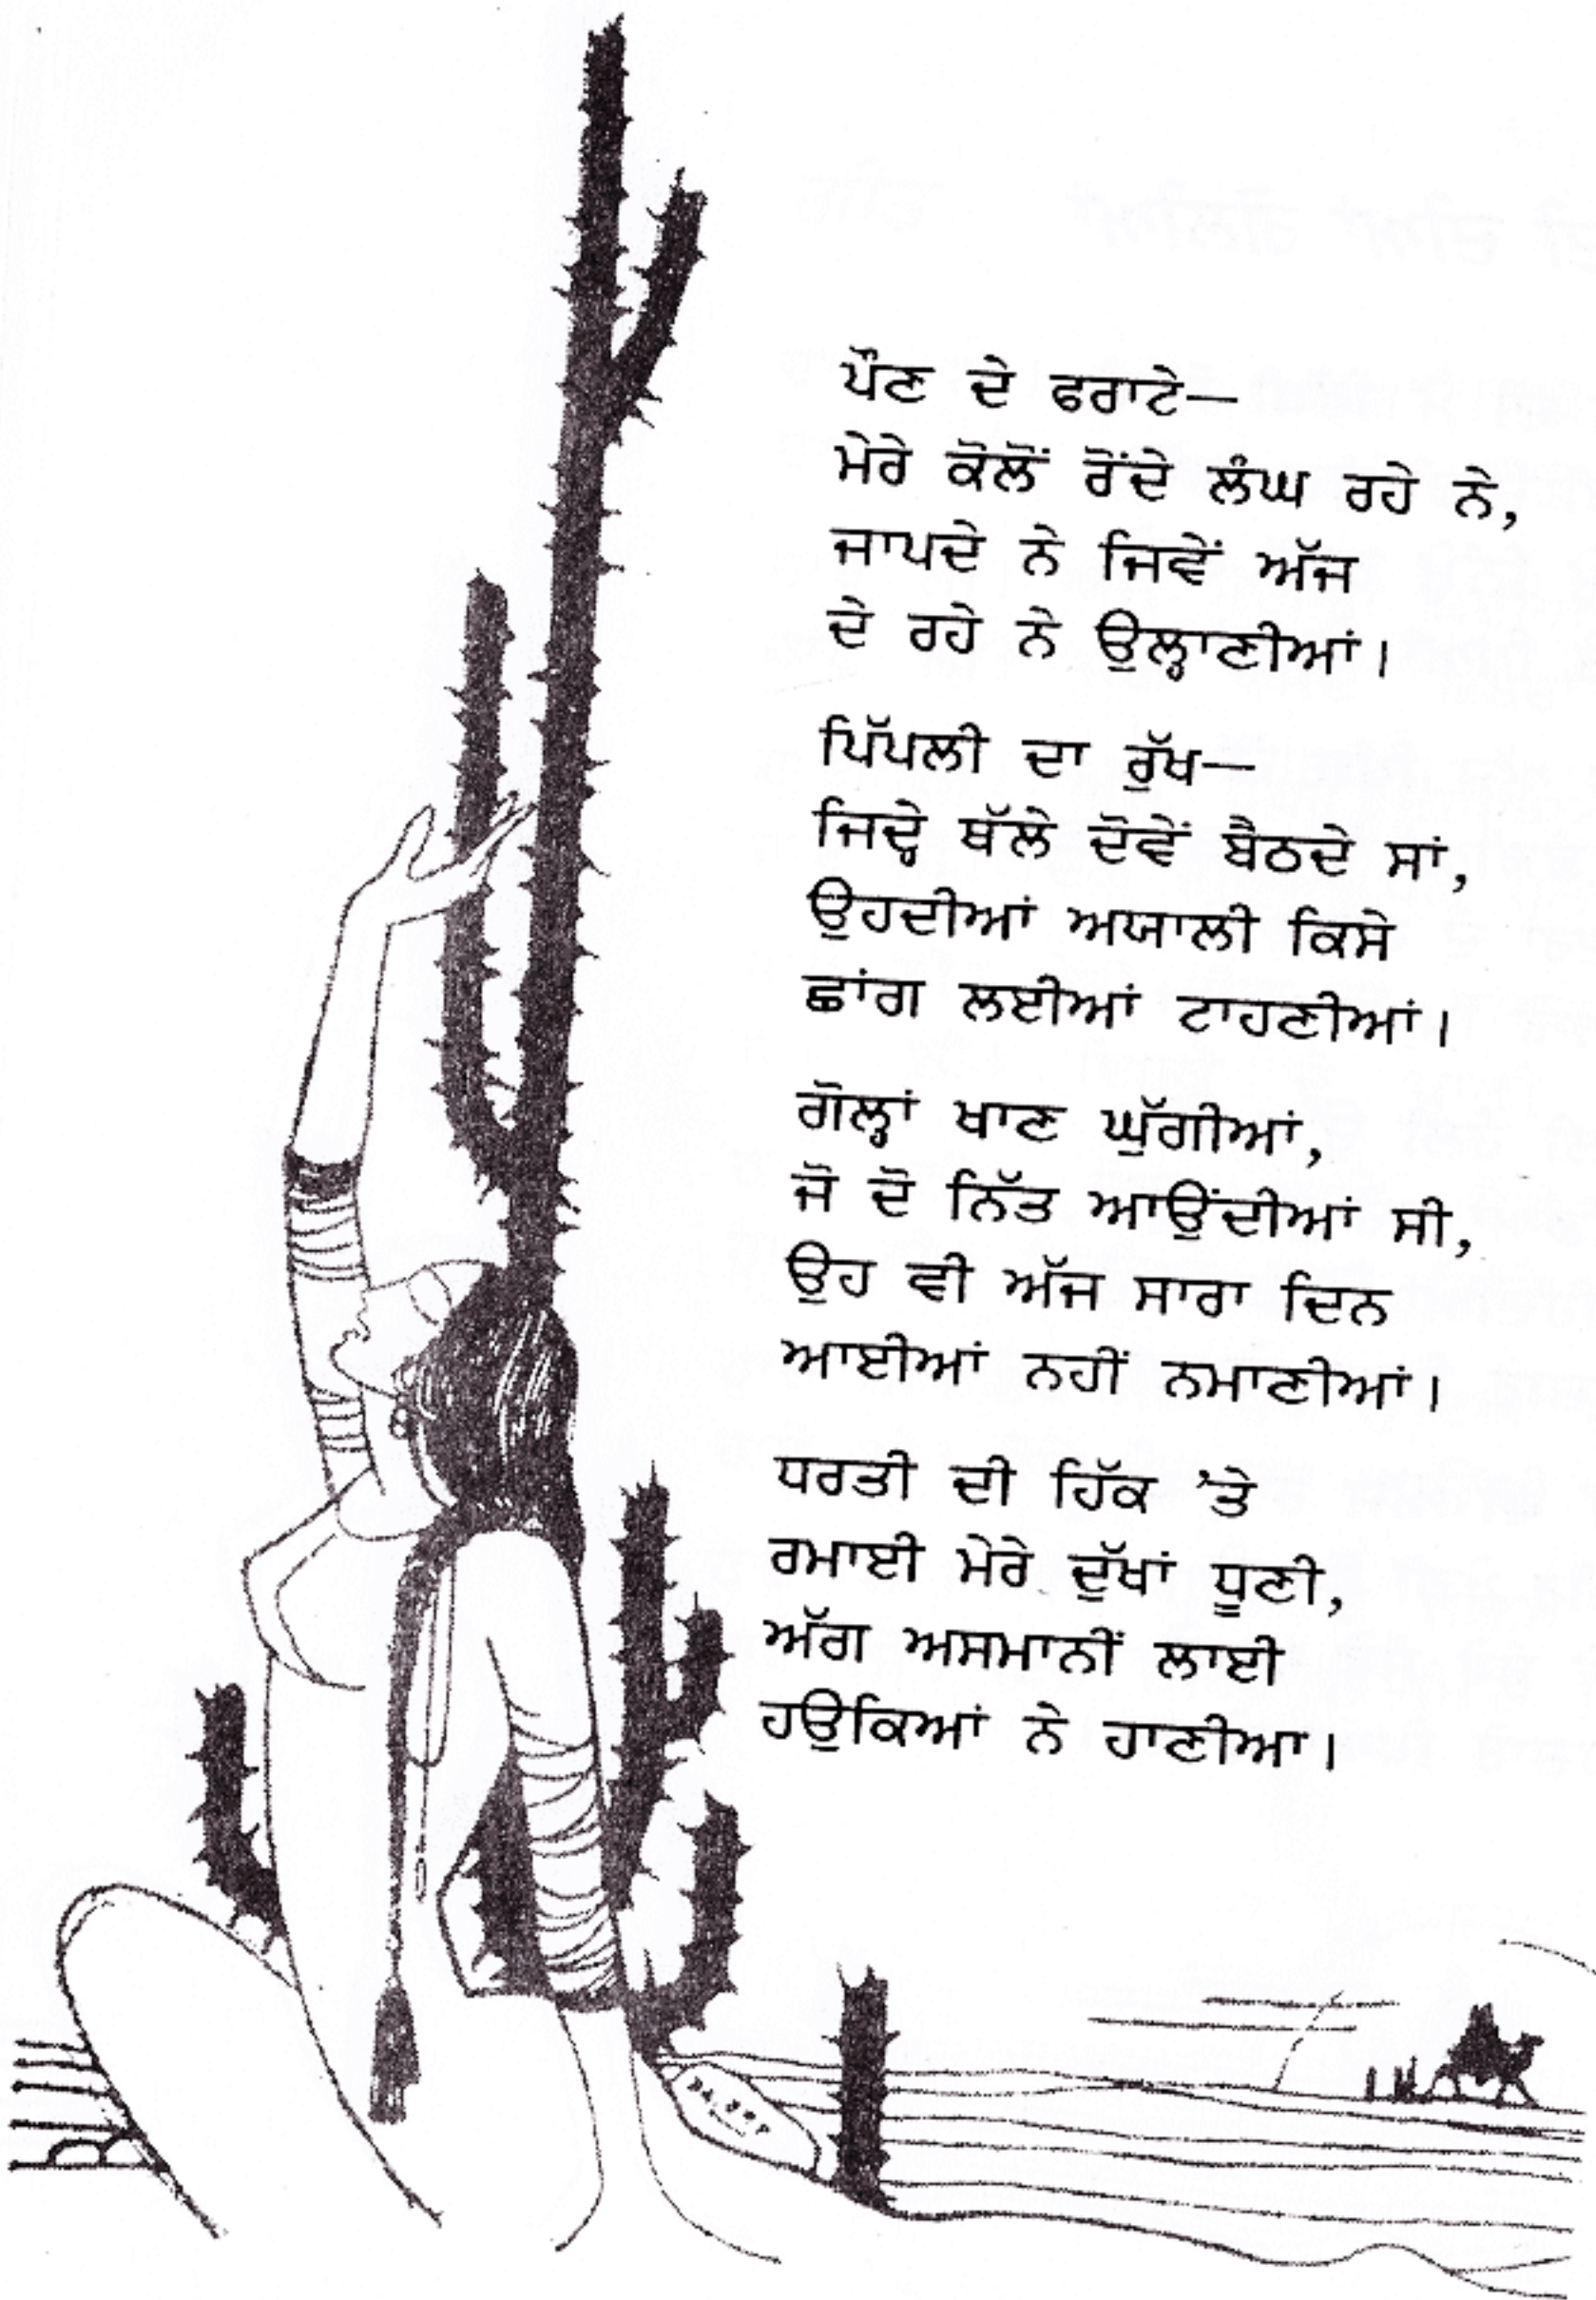 ਪੌਣ ਦੇ ਫਰਾਟੇ—
ਮੇਰੇ ਕੋਲੋਂ ਰੋਂਦੇ ਲੰਘ ਰਹੇ ਨੇ,
ਜਾਪਦੇ ਨੇ ਜਿਵੇਂ ਅੱਜ
ਦੇ ਰਹੇ ਨੇ ਉਲ੍ਹਾਣੀਆਂ।
ਪਿੱਪਲੀ ਦਾ ਰੁੱਖ—
ਜਿਦ੍ਹੇ ਥੱਲੇ ਦੋਵੇਂ ਬੈਠਦੇ ਸਾਂ,
ਉਹਦੀਆਂ ਅਯਾਲੀ ਕਿਸੇ
ਛਾਂਗ ਲਈਆਂ ਟਾਹਣੀਆਂ।
ਗੋਲ੍ਹਾਂ ਖਾਣ ਘੁੱਗੀਆਂ,
ਜੋ ਦੋ ਨਿੱਤ ਆਉਂਦੀਆਂ ਸੀ,
ਉਹ ਵੀ ਅੱਜ ਸਾਰਾ ਦਿਨ
ਆਈਆਂ ਨਹੀਂ ਨਮਾਣੀਆਂ।
ਧਰਤੀ ਦੀ ਹਿੱਕ ’ਤੇ
ਰਮਾਈ ਮੇਰੇ ਦੁੱਖਾਂ ਧੂਣੀ,
ਅੱਗ ਅਸਮਾਨੀਂ ਲਾਈ
ਹਉਕਿਆਂ ਨੇ ਹਾਣੀਆ।